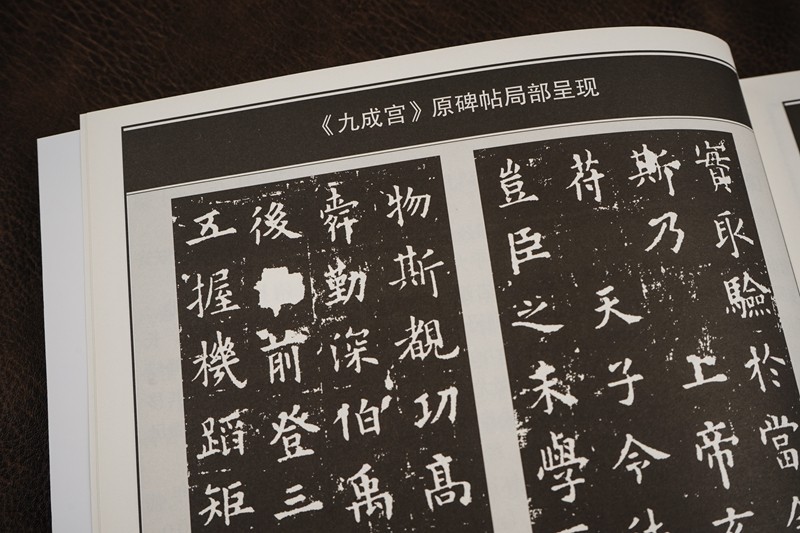 《九成宫》原碑帖局部呈现
實取驗於當
斯乃上帝玄
苻天子令
豈臣之末學
物斯覩功高
舜勤深伯禹
後前登三
五握機蹈矩